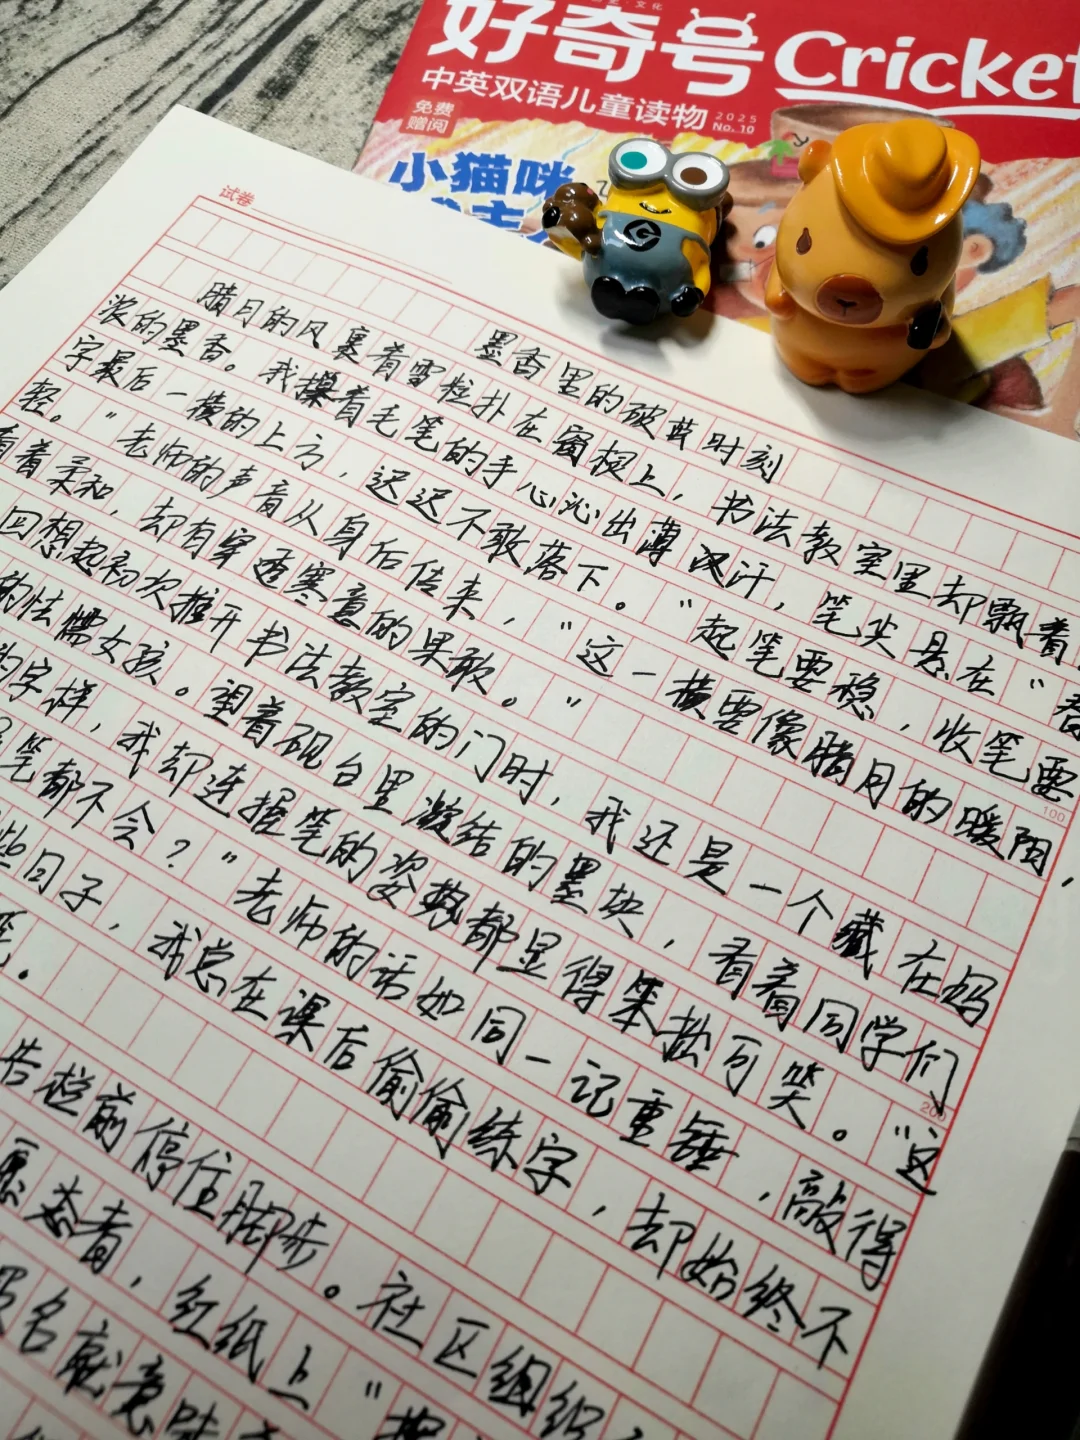 好奇号 Cricket
中英双语儿童读物
2025
No.10
免费
赠阅
小猫咪
试卷
墨香里的破茧时刻
腊月的风裹着雪粒扑在窗棂上，书法教室里却飘着
浓的墨香。我攥着毛笔的手心沁出薄汗，笔尖悬在“春
字最后一横的上方，迟迟不敢落下。“起笔要稳，收笔要
轻。”老师的声音从身后传来，“这一横要像腊月的暖阳，
看着柔和，却有穿透寒意的果敢。”
100
回想起初次推开书法教室的门时，我还是一个藏在妈
的怯懦女孩。望着砚台里凝结的墨块，看着同学们
的字样，我却连握笔的姿势都显得笨拙可笑。“这
200
笔都不会？”老师的话如同一记重锤，敲得
些日子，我总在课后偷偷练字，却始终不
告栏前停住脚步。社区组织
愿者，红纸上“
名就意味着